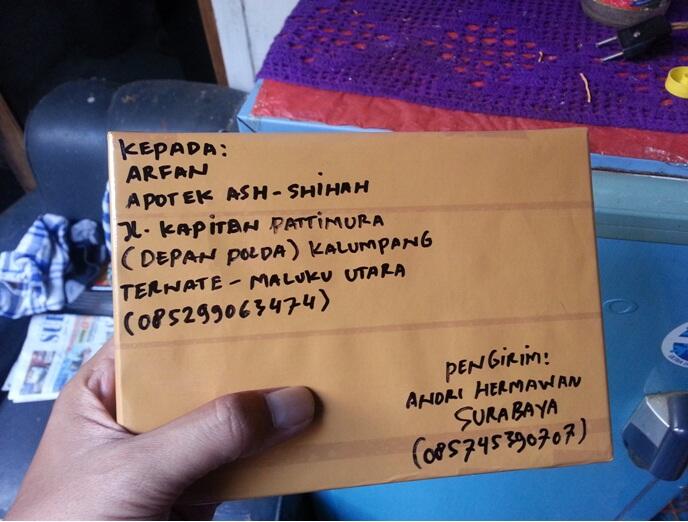 KEPADA:
ARFAN
APOTEK ASH-SHIHAH
Jl. KAPITAN PATTIMURA
(DEPAN POLDA) KALUMPANG
TERNATE - MALUKU UTARA
(085299063474)
PENGIRIM:
ANDRI HERMAWAN
SURABAYA
(085745390707)